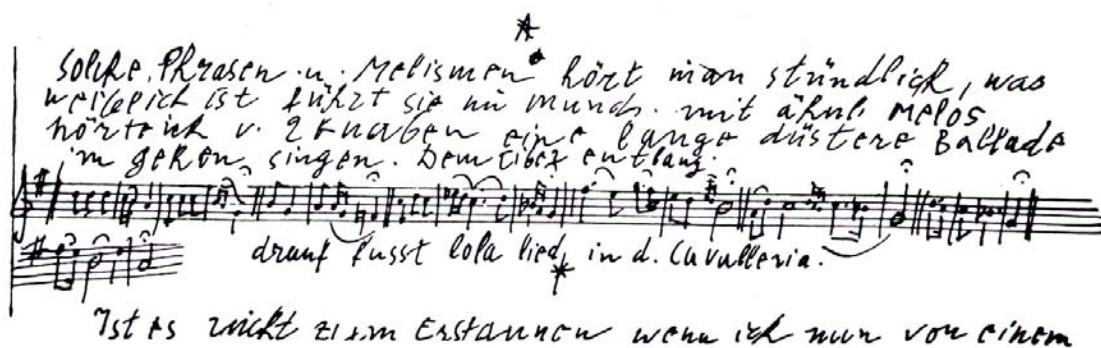 Solche Phrasen u. Melismen* hört man stündlich, was
weiblich ist führt sie im Mund. mit ähnl. Melos
hörte ich v. 2 Knaben eine lange düstere Ballade
im gehen singen. Dem Tiber entlang.
drauf fusst Lola lied, in d. Cavalleria.
*
Ist es nicht zum Erstaunen wenn ich nun von einem